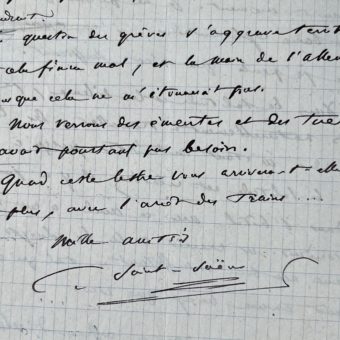 question des grèves s'aggraverait
cela finira mal, et la main de l'Allem
que cela ne m'étonnerait pas.
Nous verrons des émeutes et des tue
avait pourtant pas besoin.
Quand cette lettre vous arrivera-t-elle
plus, avec l'arrêt des Trains ....
Mille amitiés
C. Saint-Saëns